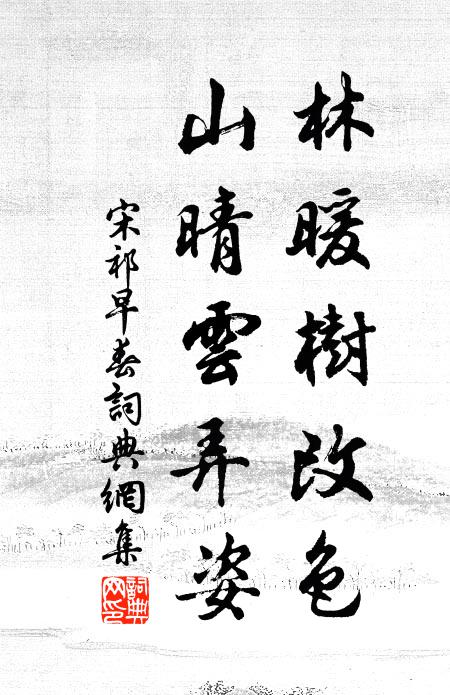 林暖樹改色
山晴雲弄姿
宋祁早春詞典網集
詞典網印